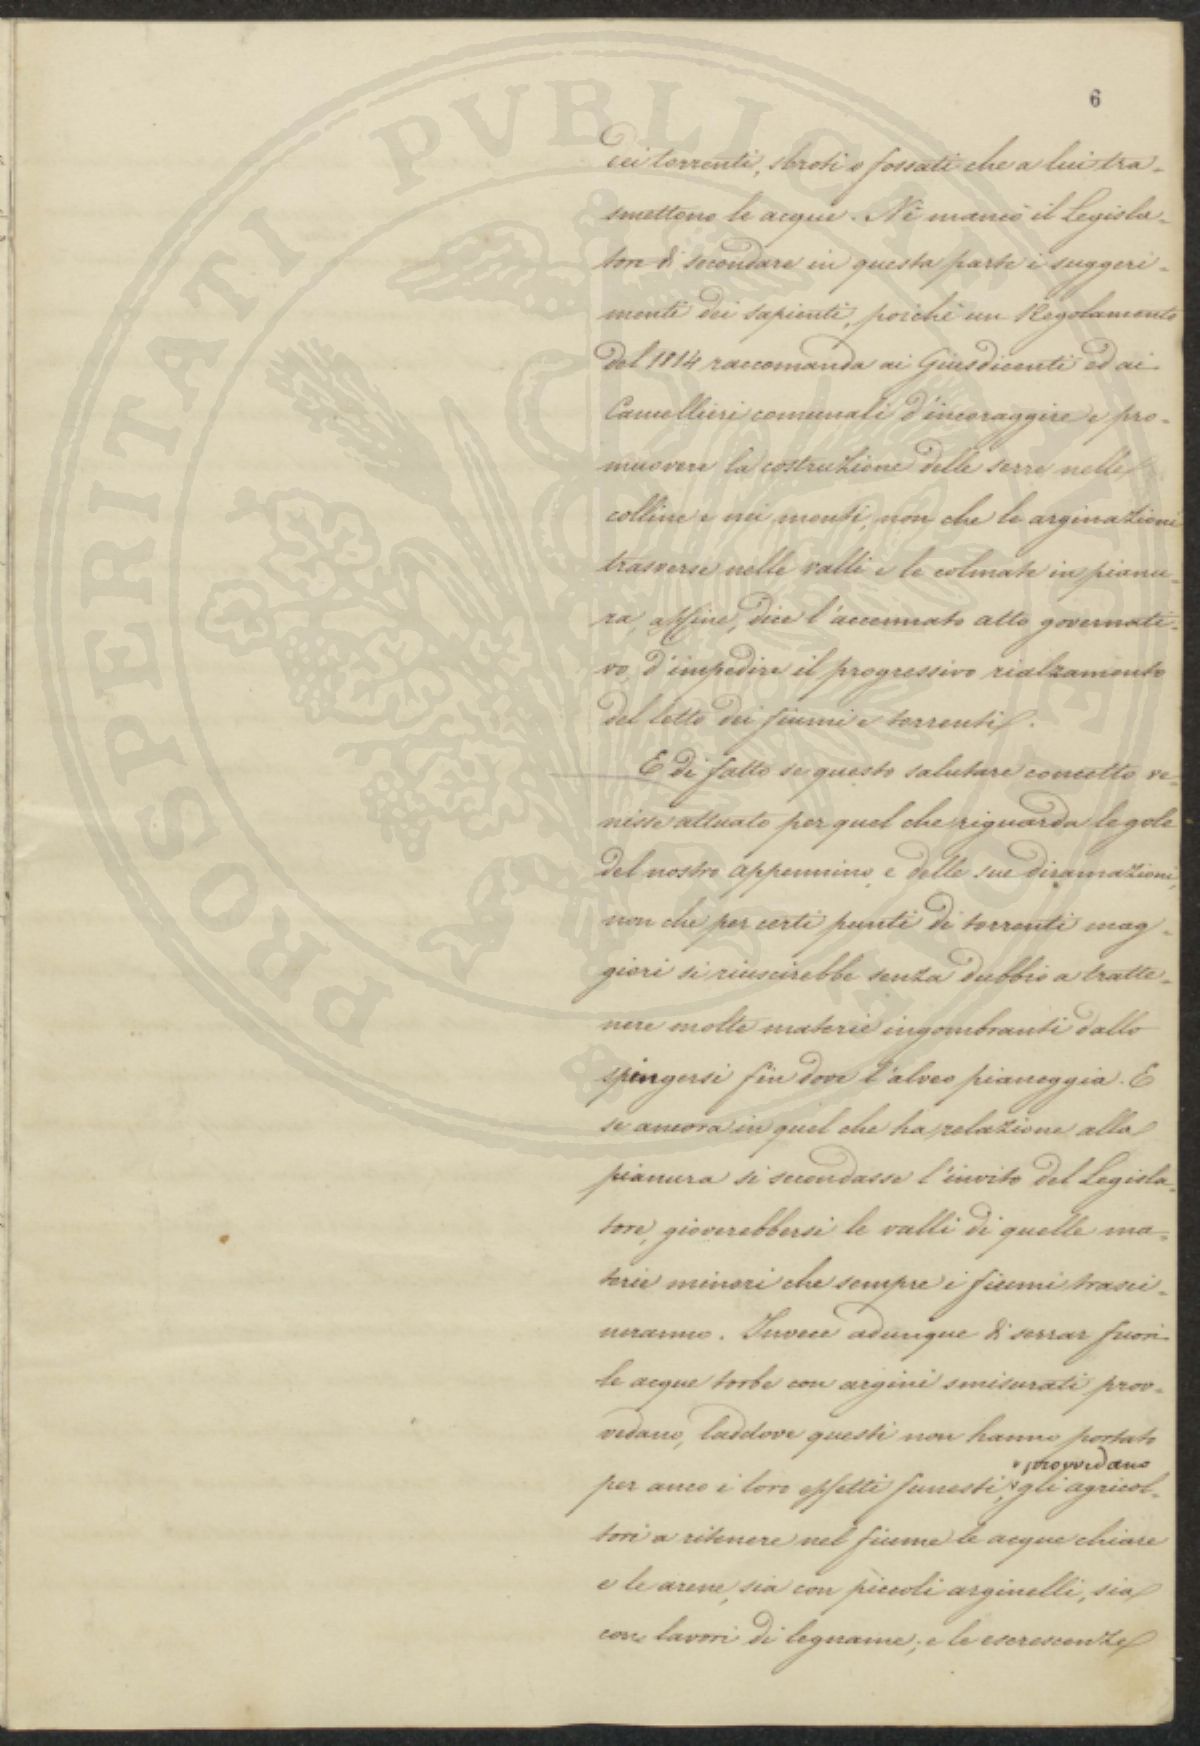 6
dei torrenti, sbroti e fossati che a lui tra-
smettono le acque. Nè mancò il Legisla-
tore di secondare in questa parte i suggeri-
menti dei sapienti, poichè un Regolamento
del 1814 raccomanda ai Giusdicenti ed ai
Cancellieri comunali d'incoraggire e pro-
muovere la costruzione delle serre nelle
colline e nei monti, non che le arginazioni
trasverse nelle valli e le colmate in pianu-
ra, affine, dice l'accennato atto governati-
vo, d'impedire il progressivo rialzamento
del letto dei fiumi e torrenti.
E di fatto se questo salutare concetto ve-
nisse attuato per quel che riguarda le gole
del nostro appennino, e delle sue diramazioni,
non che per certi punti di torrenti mag-
giori si riuscirebbe senza dubbio a tratte-
nere molte materie ingombranti dallo
spingersi fin dove l'alveo pianeggia. E
se ancora in quel che ha relazione alla
pianura si secondasse l'invito del Legisla-
tore, gioverebbersi le valli di quelle ma-
terie minori che sempre i fiumi trasci-
neranno. Invece adunque di serrar fuori
le acque torbe con argini smisurati prov-
vedano, laddove questi non hanno portato
provvedano
per anco i loro effetti funesti, gli agricol-
tori a ritenere nel fiume le acque chiare
e le arene, sia con piccoli arginelli, sia
con lavori di legname; e le escrescenze
PROSPERITATI PVBLICAE